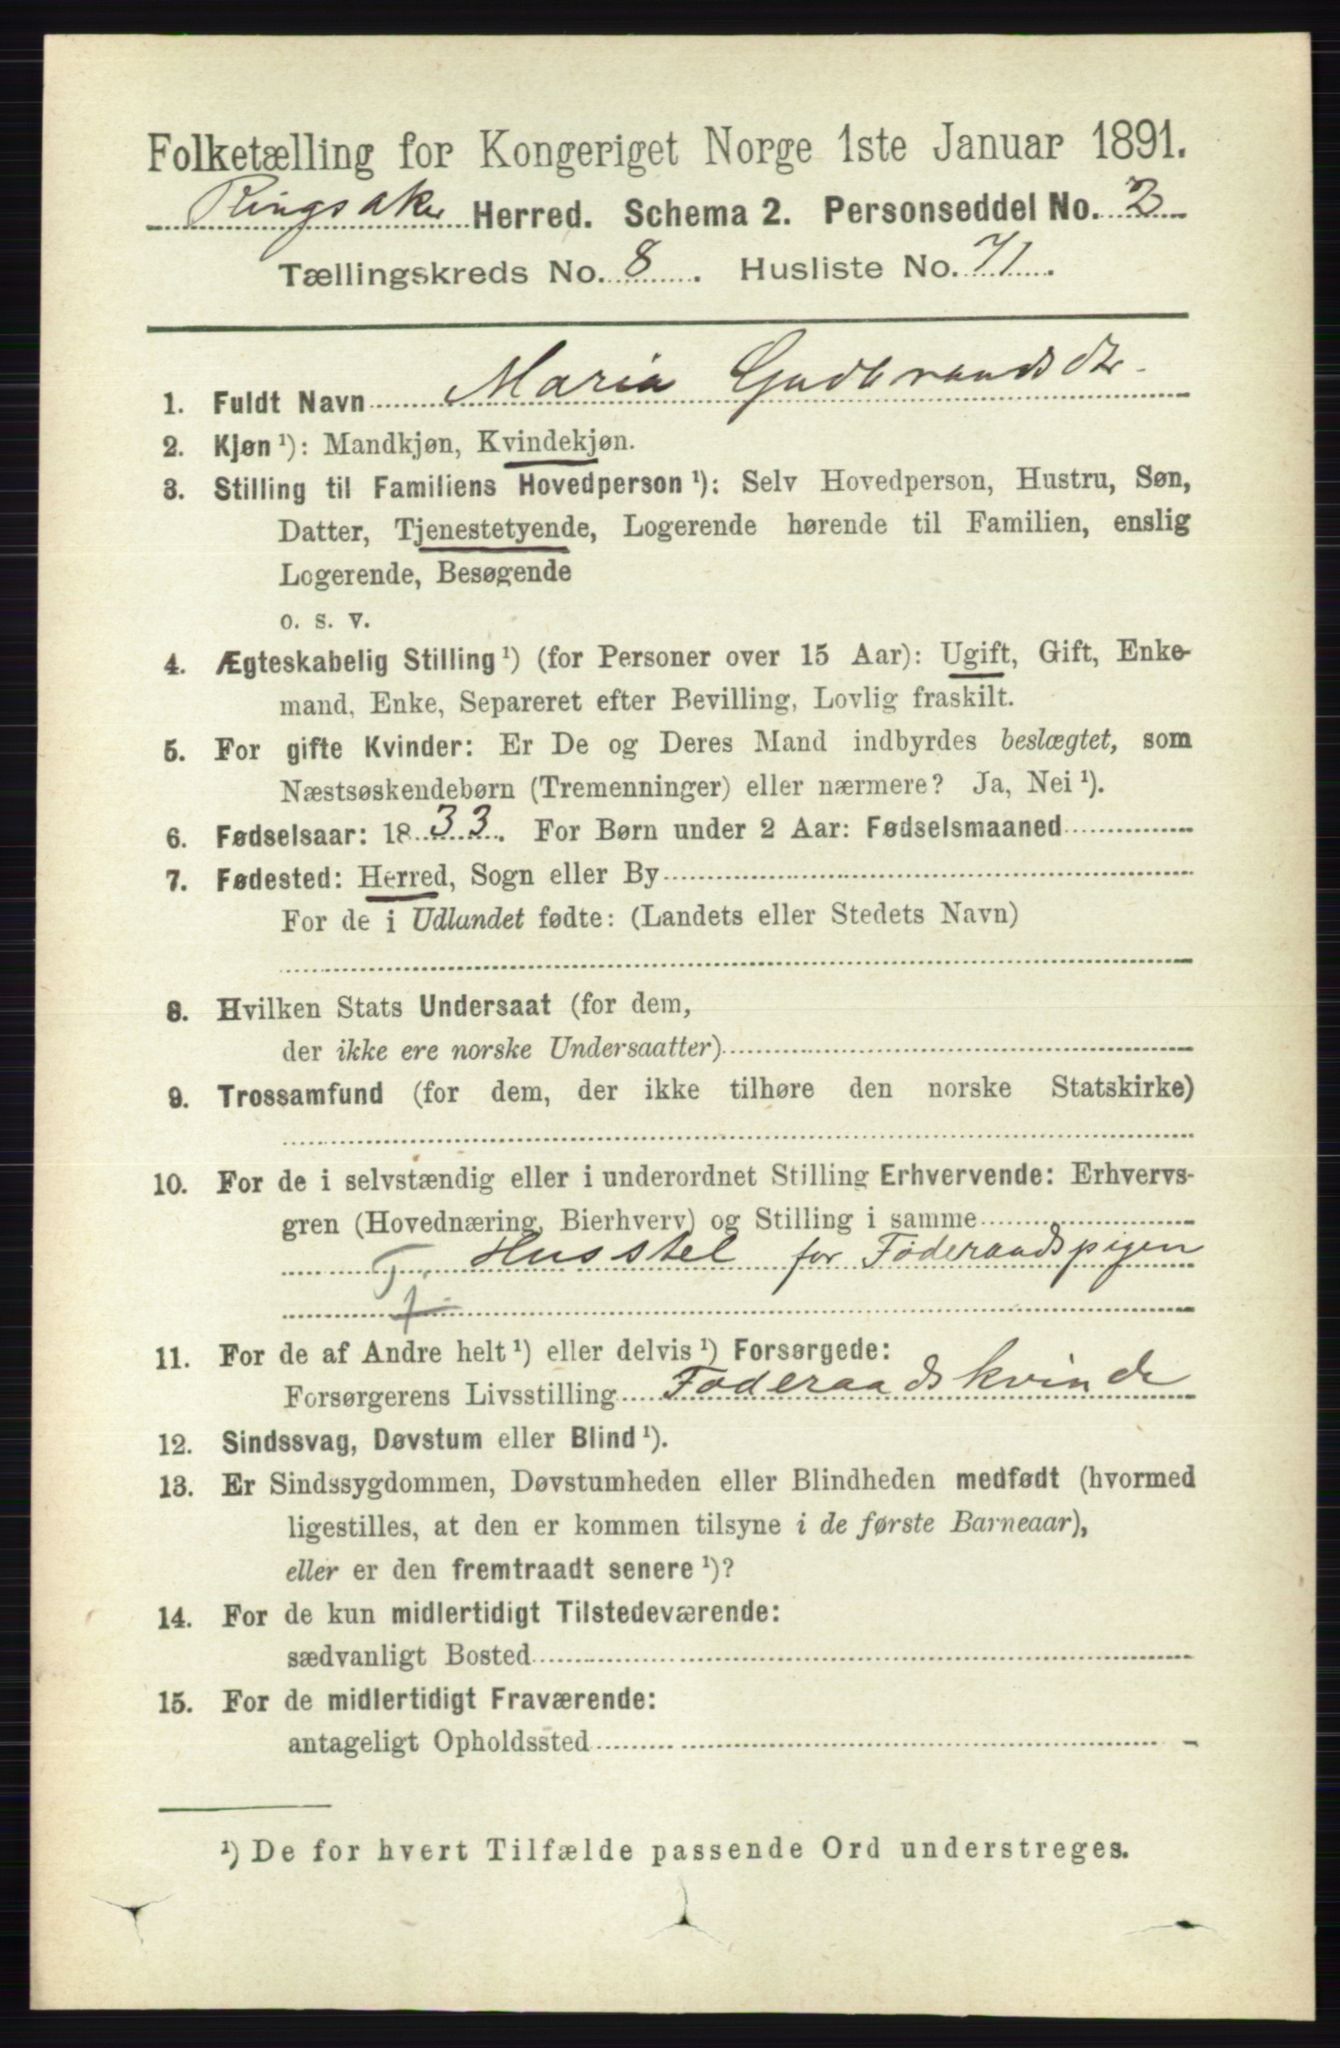 Folketælling for Kongeriget Norge 1ste Januar 1891.
Ringsaker Herred. Schema 2. Personseddel No. 2
Tællingskreds No. 8. Husliste No. 71.
1. Fuldt Navn Maria Gudbrandsdtr.
2. Kjøn ¹): Mandkjøn, Kvindekjøn.
3. Stilling til Familiens Hovedperson ¹): Selv Hovedperson, Hustru, Søn,
Datter, Tjenestetyende, Logerende hørende til Familien, enslig
Logerende, Besøgende
o. s. v.
4. Ægteskabelig Stilling ¹) (for Personer over 15 Aar): Ugift, Gift, Enke-
mand, Enke, Separeret efter Bevilling, Lovlig fraskilt.
5. For gifte Kvinder: Er De og Deres Mand indbyrdes beslægtet, som
Næstsøskendebørn (Tremenninger) eller nærmere? Ja, Nei ¹).
6. Fødselsaar: 1833. For Børn under 2 Aar: Fødselsmaaned
7. Fødested: Herred, Sogn eller By
For de i Udlandet fødte: (Landets eller Stedets Navn)
8. Hvilken Stats Undersaat (for dem,
der ikke ere norske Undersaatter)
9. Trossamfund (for dem, der ikke tilhøre den norske Statskirke)
10. For de i selvstændig eller i underordnet Stilling Erhvervende: Erhvervs-
gren (Hovednæring, Bierhverv) og Stilling i samme
Husstel for Føderaadspigen
11. For de af Andre helt ¹) eller delvis ¹) Forsørgede:
Forsørgerens Livsstilling Føderaadskvinde
12. Sindssvag, Døvstum eller Blind ¹).
13. Er Sindssygdommen, Døvstumheden eller Blindheden medfødt (hvormed
ligestilles, at den er kommen tilsyne i de første Barneaar),
eller er den fremtraadt senere ¹)?
14. For de kun midlertidigt Tilstedeværende:
sædvanligt Bosted
15. For de midlertidigt Fraværende:
antageligt Opholdssted
¹) De for hvert Tilfælde passende Ord understreges.